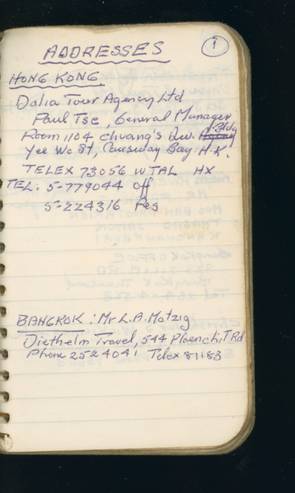 ADDRESSES
1
HONG KONG
Dalia Tour Agency Ltd
Paul Tse, General Manager
Room 1104 Chuang's Bldg
Yee Wo St, Causway Bay H.K.
TELEX 73056 WTAL HX
TEL: 5-779044 Off
5-224316 Res
BANGKOK: Mr L.A. Motzig
Diethelm Travel, 544 Ploenchit Rd
Phone 2524041 Telex 81183